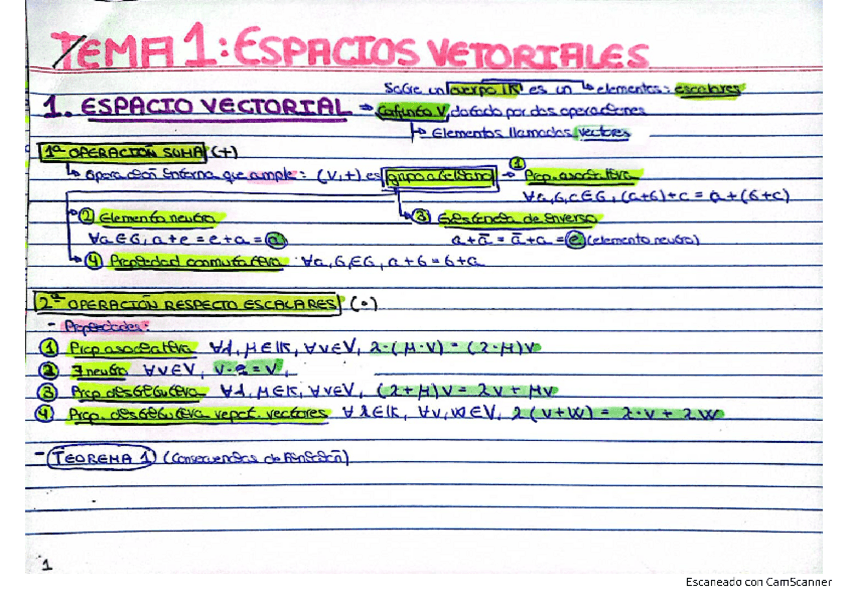 TEMA 1: ESPACIOS VETORIALES
Sobre un cuerpo IK es un → elementos: escalares
1. ESPACIO VECTORIAL → Conjunto V, dotado por dos operaciones
→ Elementos llamados vectores
1ª OPERACIÓN SUMA (+)
→ operación interna que cumple: (V,+) es grupo abeliano → ① Prop. asociativa
∀a,b,c∈G, (a+b)+c = a+(b+c)
② Elemento neutro
③ Existencia de inverso
∀a∈G, a+e = e+a = a
a+ā = ā+a = e (elemento neutro)
④ Propiedad conmutativa ∀a,b∈G, a+b = b+a
2ª OPERACIÓN RESPECTO ESCALARES (•)
- Propiedades:
① Prop. asociativa ∀λ,μ∈IK, ∀v∈V, λ·(μ·v) = (λ·μ)v
② ∃ neutro ∀v∈V, v·e = v,
③ Prop. distributiva ∀λ,μ∈IK, ∀v∈V, (λ+μ)v = λv + μv
④ Prop. distributiva repet. vectores ∀λ∈IK, ∀v,w∈V, λ(v+w) = λ·v + λw
- TEOREMA 1 (Consecuencias de definición)
1
Escaneado con CamScanner